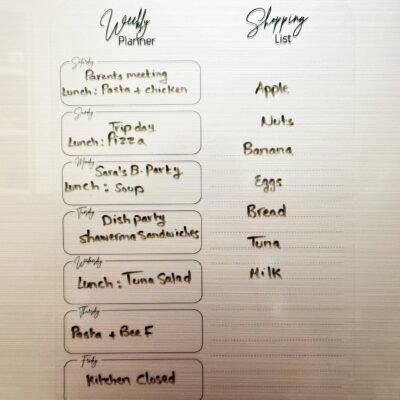 Weekly
Planner
Saturday
Parents meeting
Lunch: Pasta + chicken
Sunday
Trip day
Lunch: Pizza
Monday
Sara's B. Party
Lunch: Soup
Tuesday
Dish party
shawerma Sandwiches
Wednesday
Lunch: Tuna Salad
Thursday
Pasta + BeeF
Friday
Kitchen Closed
Shopping
List
Apple
Nuts
Banana
Eggs
Bread
Tuna
Milk